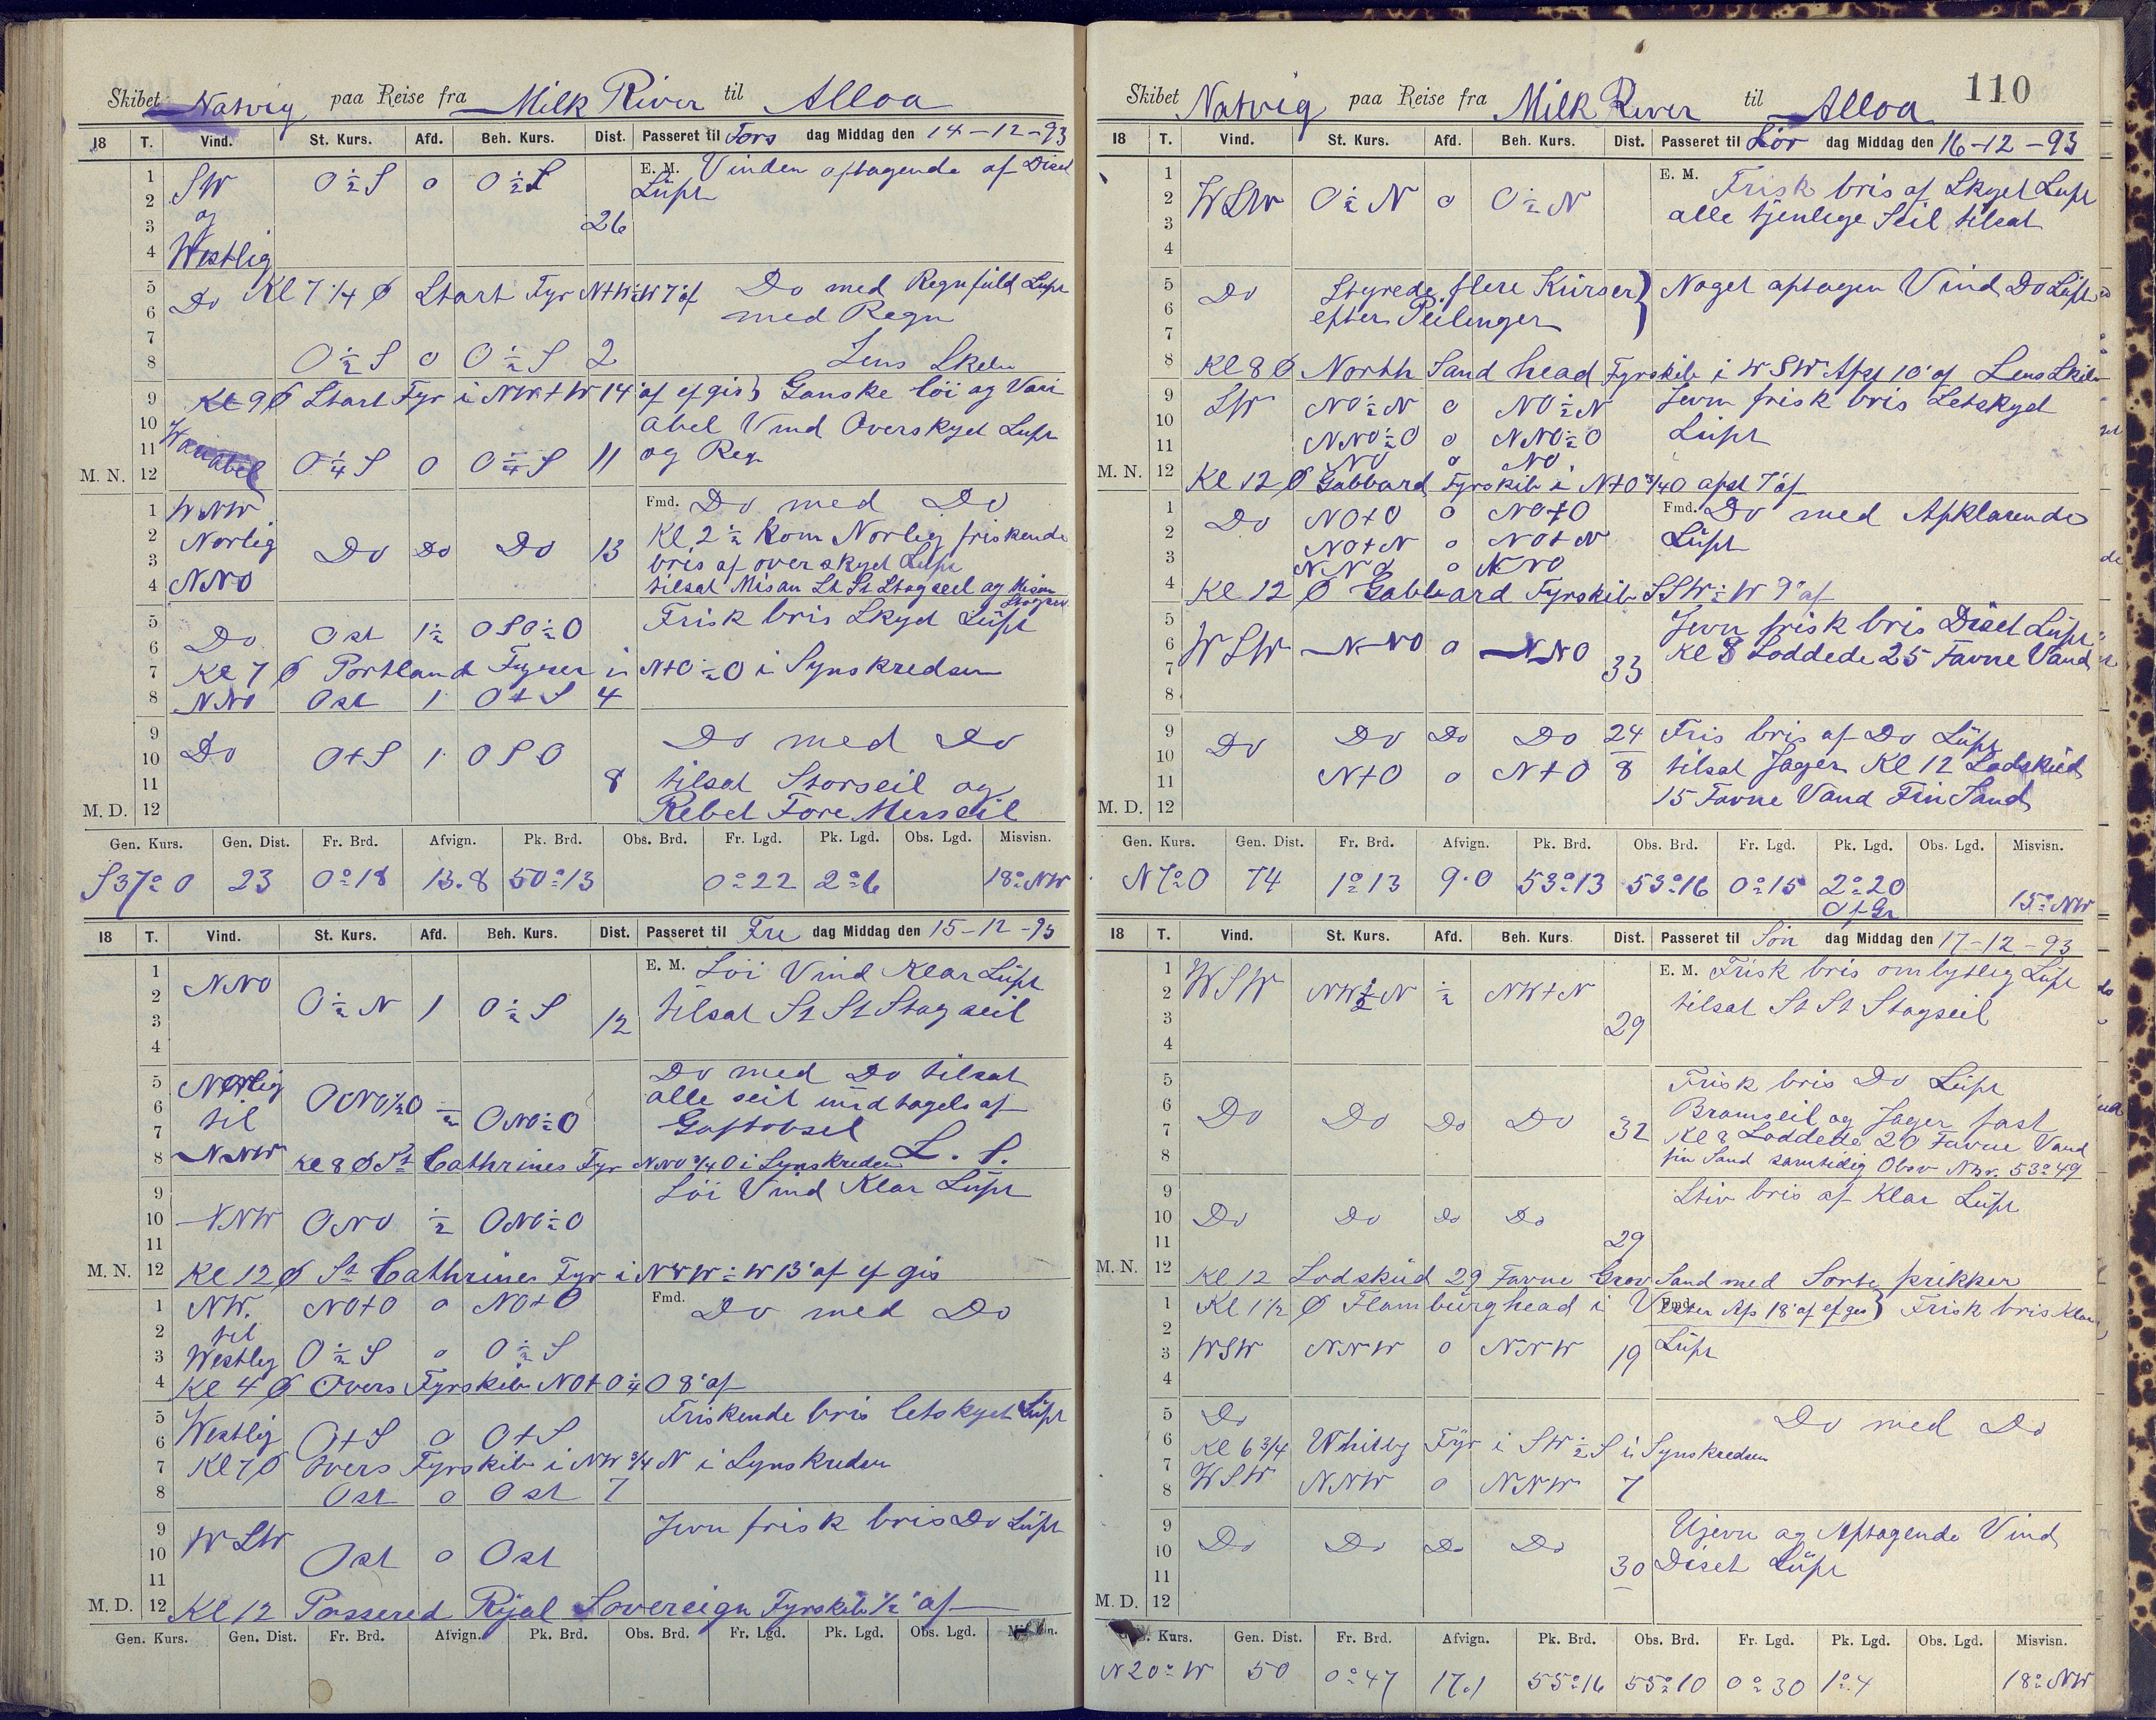 Skibet Natvig paa Reise fra Milk River til Alloa
18 T. Vind. St. Kurs. Afd. Beh. Kurs. Dist. Passeret til Tors dag Middag den 14-12-93
1 SW O½S o O½S E. M. Vinden aftagende af Diset
2 og Luft
3 26
4 Westlig
5 Do Kl 7 1/4 Ø Start Fyr N+W½W 7' af Do med Regnfuld Luft
6 med Regn
7
8 O½S o O½S 2 Lens Skib
9 Kl 9 Ø Start Fyr i NW+W 14' af ef gis } Ganske löi og Vari
10 abel Vind Overskyet Luft
11 Variabel O¼S o O¼S 11 og Regn
M. N. 12
1 WNW Fmd. Do med Do
2 Norlig Do Do Do 13 Kl 2½ kom Norlig friskende
3 bris af overskyet Luft
4 NNO tilsat Misan St St Stagseil og Misan
5 Do Ost 1½ OSO½O Frisk bris Skyet Luft
6
7 Kl 7 Ø Portland Fyrer i N+O½O i Synskredsen
8 NNO Ost 1 O+S 4
9 Do med Do
10 Do O+S 1 OSO
11 8 tilsat Storseil og
M. D. 12 Rebet Fore Merseil
Gen. Kurs. Gen. Dist. Fr. Brd. Afvign. Pk. Brd. Obs. Brd. Fr. Lgd. Pk. Lgd. Obs. Lgd. Misvisn.
S37°O 23 0°18 13.8 50°13 0°22 2°6 18°NW
18 T. Vind. St. Kurs. Afd. Beh. Kurs. Dist. Passeret til Fre dag Middag den 15-12-93
1 NNO E. M. Löi Vind Klar Luft
2 O½N 1 O½S tilsat St St Stagseil
3 12
4
5 Norlig Do med Do tilsat
6 til ONO½O ½ ONO½O alle seil undtagels af
7 Gaftobsel
8 NNW Kl 8 Ø St Cathrines Fyr NNO¾O i Synskredsen L. S.
9 Löi Vind Klar Luft
10 NNW ONO ½ ONO½O
11
M. N. 12 Kl 12 Ø St Cathrines Fyr i NWW½W 13' af ef gis
1 NW. NO+O o NO+O Fmd. Do med Do
2 til
3 Westlig O½S o O½S
4 Kl 4 Ø Overs Fyrskib NO+O¼O 8' af
5 Westlig Friskende bris letskyet Luft
6 O+S o O+S
7 Kl 7 Ø Overs Fyrskib i NW¾N i Synskredsen
8 Ost o Ost 7
9 WSW Jevn frisk bris Do Luft
10 Ost o Ost
11
M. D. 12 Kl 12 Passered Rÿal Sovereign Fyrskib ½' af
Gen. Kurs. Gen. Dist. Fr. Brd. Afvign. Pk. Brd. Obs. Brd. Fr. Lgd. Pk. Lgd. Obs. Lgd.
110
Skibet Natvig paa Reise fra Milk River til Alloa
18 T. Vind. St. Kurs. Afd. Beh. Kurs. Dist. Passeret til Lör dag Middag den 16-12-93
1 E. M. Frisk bris af Skyet Luft
2 WSW O½N o O½N alle tjenlege Seil tilsat
3
4
5 Do Styrede flere Kurser } Noget aftagen Vind Do Luft
6 efter Peilinger
7
8 Kl 8 Ø North Sand head Fyrskib i WSW Afst 10' af Lens Skib
9 SW NO½N o NO½N Jevn frisk bris Letskyet
10 NNO½O o NNO½O Luft
11 NO o NO
M. N. 12 Kl 12 Ø Gabbard Fyrskib i N+O¾O afst 7' af
1 Do NO+O o NO+O Fmd. Do med Afklarende
2 NO+N o NO+N Luft
3 NNO o NNO
4 Kl 12 Ø Gabbard Fyrskib SSW½W 9' af
5 Jevn frisk bris Diset Luft
6 WSW NNO o NNO Kl 8 Loddede 25 Favne Vand
7 33
8
9 Do Do Do Do 24 Fris bris af Do Luft
10 N+O o N+O 8 tilsat Jager Kl 12 Lodskud
11 15 Favne Vand Fin Sand
M. D. 12
Gen. Kurs. Gen. Dist. Fr. Brd. Afvign. Pk. Brd. Obs. Brd. Fr. Lgd. Pk. Lgd. Obs. Lgd. Misvisn.
N7°O 74 1°13 9.0 53°13 53°16 0°15 2°20 15°NW
Af Gr
18 T. Vind. St. Kurs. Afd. Beh. Kurs. Dist. Passeret til Sön dag Middag den 17-12-93
1 WSW NW½N ½ NW+N E. M. Frisk bris omlystlig Luft
2 tilsat St St Stagseil
3 29
4
5 Frisk bris Do Luft
6 Do Do Do Do Bramseil og Jager fast
7 32 Kl 8 Loddede 20 Favne Vand
8 fin Sand samtidig Obsv Nbr. 53°49
9 Stiv bris af Klar Luft
10 Do Do Do Do
11 29
M. N. 12 Kl 12 Lodskud 29 Favne Grov Sand med Sorte prikker
1 Kl 1½ Ø Flamburghead i Vester Afs 18' af ef gis } Fmd. Frisk bris Klar
2
3 WSW NNW o NNW 19 Luft
4
5 Do Do med Do
6 Kl 6¾ Whitby Fÿr i SW½S i Synskredsen
7
8 WSW NNW o NNW 7
9 Ujevn og Aftagende Vind
10 Do Do Do Do
11 30 Diset Luft
M. D. 12
Kurs. Gen. Dist. Fr. Brd. Afvign. Pk. Brd. Obs. Brd. Fr. Lgd. Pk. Lgd. Obs. Lgd. Misvisn.
N20°W 50 0°47 17.1 55°16 55°10 0°30 1°4 18°NW